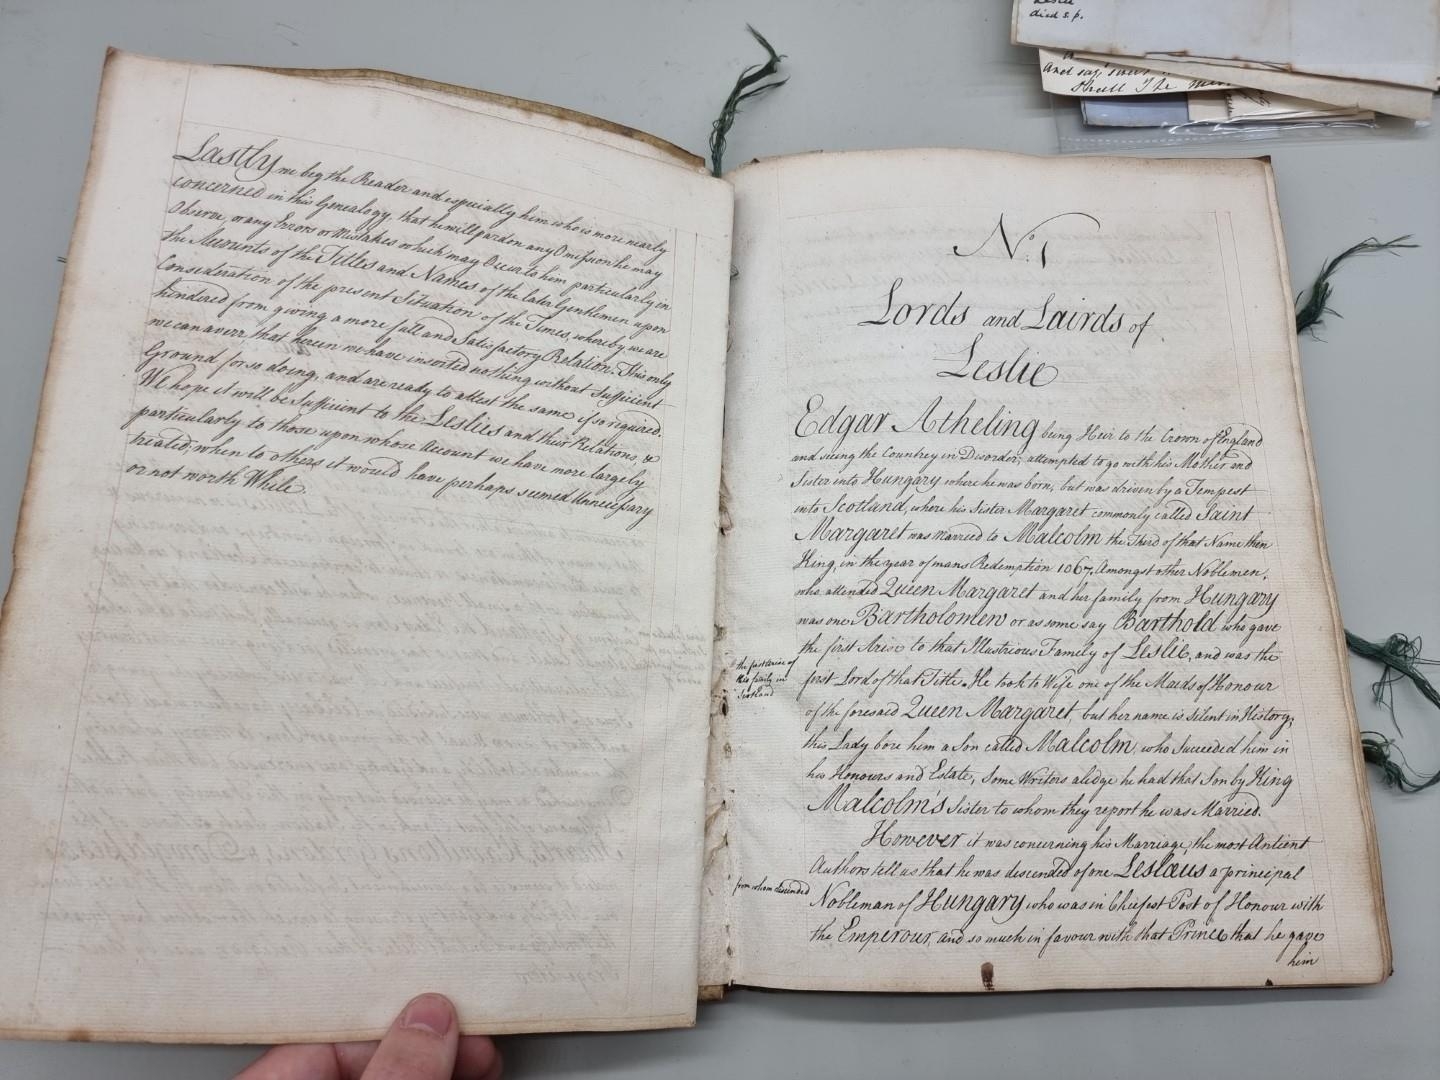 Lastly we beg the Reader and especially him who is more nearly
concerned in this Genealogy, that he will pardon any Omission he may
Observe, or any Errors or Mistakes which may Occur to him particularly in
the Accounts of the Titles and Names of the later Gentlemen upon
Consideration of the present Situation of the Times, whereby we are
hindered from giving a more full and Satisfactory Relation. This only
we can averr, that herein we have inserted nothing without Sufficient
Ground for so doing, and are ready to attest the same if so required.
We hope it will be Sufficient to the Leslies and their Relations, &
particularly to those upon whose Account we have more largely
treated; when to others it would have perhaps seemed Unnecessary
or not worth While.
No. 1
Lords and Lairds of
Leslie
Edgar Atheling being Heir to the Crown of England
and seeing the Countrey in Disorder, attempted to go with his Mother and
Sister into Hungary where he was born, but was driven by a Tempest
into Scotland, where his Sister Margaret commonly called Saint
Margaret was married to Malcolm the Third of that Name then
King, in the year of mans Redemption 1067. Amongst other Noblemen,
who attended Queen Margaret and her family from Hungary
was one Bartholomew or as some say Barthold who gave
the first Arise to that Illustrious Family of Leslie, and was the
first Lord of that Title. He took to Wife one of the Maids of Honour
of the foresaid Queen Margaret, but her name is Silent in History;
this Lady bore him a Son called Malcolm, who Succeeded him in
his Honours and Estate, Some Writers aledge he had that Son by King
Malcolm's Sister to whom they report he was Married.
However it was concerning his Marriage, the most Antient
Authors tell us that he was descended of one Leslaus a principal
Nobleman of Hungary who was in Chiefest Post of Honour with
the Emperour, and so much in favour with that Prince that he gave
him
the first arise of
this family in
Scotland
from whom descended
Leslie
died s.p.
And say,
Shall I the